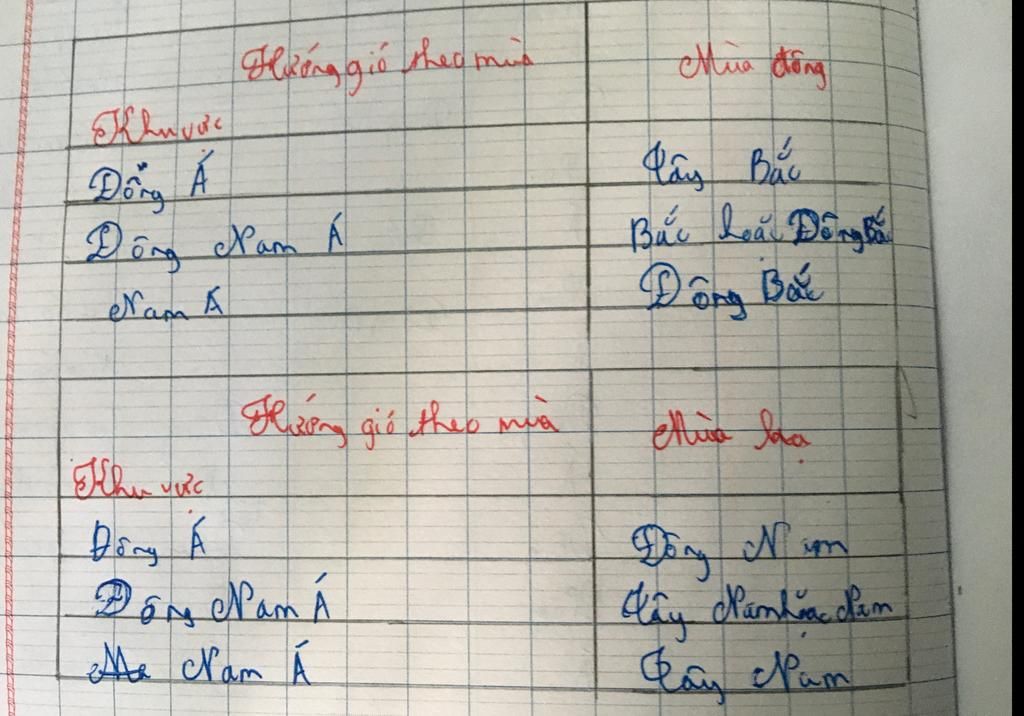 Hướng gió theo mùa Mùa đông
Khu vực
Đông Á Tây Bắc
Đông Nam Á Bắc hoặc Đông Bắc
Nam Á Đông Bắc
Hướng gió theo mùa Mùa hạ
Khu vực
Đông Á Đông Nam
Đông Nam Á Tây Nam hoặc Nam
Nam Á Tây Nam